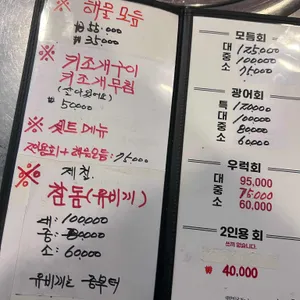 ※ 해물모듬
₩ 55.000
₩ 35000
※ 키조개구이
키조개무침
₩ 50000
※ 셋트 메뉴
전용회+해물모듬: 95000
※ 제철
참돔(유비끼)
대: 100,000
중: 80,000
소: 60,000
유비끼는 중부터
모듬회
대 125000
중 100000
소 75000
광어회
특 120000
대 100000
중 80000
소 60000
우럭회
대 95.000
중 75000
소 60.000
2인용 회
쓰끼 없습니다.
₩ 40.000